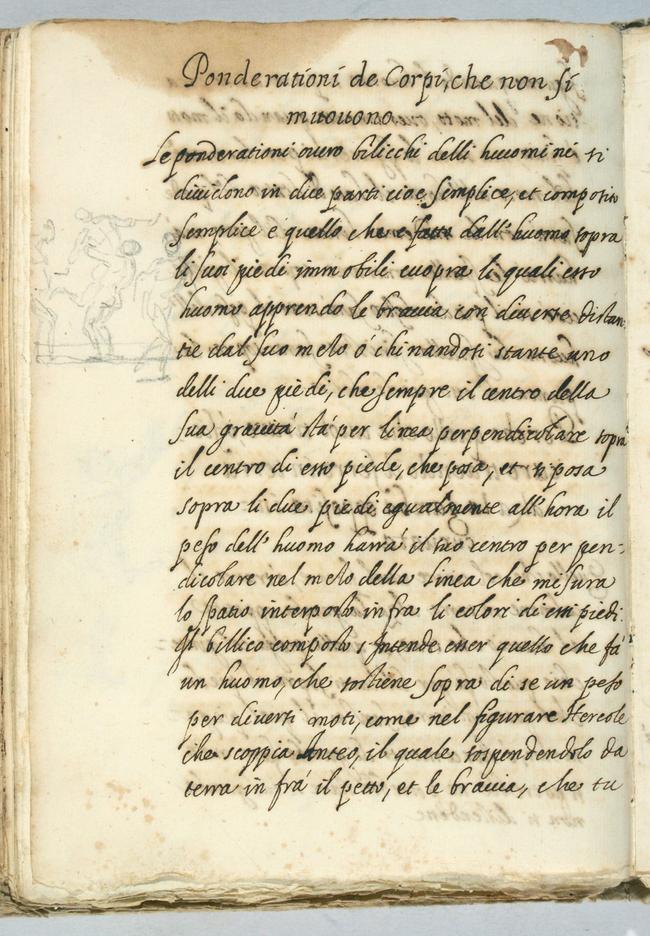 Ponderationi de Corpi, che non si
muouono
Le ponderationi ouero bilicchi delli huomini si
diuidono in due parti cioe, semplice, et composito
semplice é quello che é fatto dall' huomo sopra
li suoi piedi immobili sopra li quali esso
huomo apprendo le braccia con diuerse distan
tie dal suo mezo ó chinandosi stante uno
delli due piedi, che sempre il centro della
sua grauitá stá per linea perpendicolare sopra
il centro di esso piede, che posa, et si posa
sopra li due piedi egualmente all' hora il
peso dell' huomo harrá il suo centro per pen-
dicolare nel mezo della linea che misura
lo spatio interposto infra li centri di essi piedi.
Il billico composto s'intende esser quello che fá
un huomo, che sostiene sopra di se un peso
per diuersi moti, come nel figurare Hercole
che scoppia Anteo, il quale sospendendolo da
terra in frá il petto, et le braccia, che tu